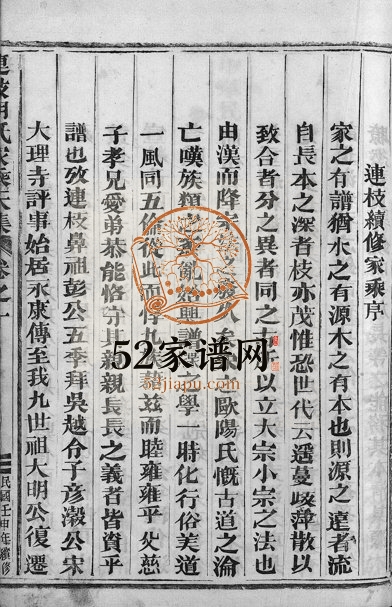 連枝續修家乘序
家之有譜猶水之有源木之有本也則源之達者流
自長本之深者枝亦茂惟恐世代云遥蔓岐萍散以
致合者分之異者同之 所以立大宗小宗之法也
由漢而降 歐陽氏慨古道之淪
亡嘆族類之 亂始興譜 之學一時化行俗美道
一風同五倫從此而惇 兹而睦雍雍乎父慈
子孝兄愛弟恭能恪守其親親長長之義者皆資乎
譜也攷連枝鼻祖彭公五季拜吳越令子彦澂公宋
大理寺評事始居永康傳至我九世祖大明公復遷
連枝胡氏家乘大集 卷之一
民國壬申年續修
52家谱网
52jiapu.com